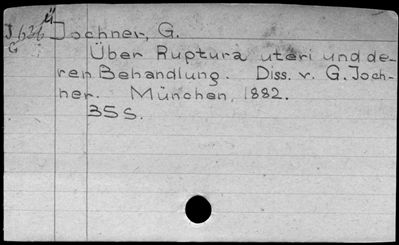 J626ü Jochner, G.
G Über Ruptura uteri und de-
ren Behandlung. Diss. v. G. Joch-
ner. München, 1882.
35 S.